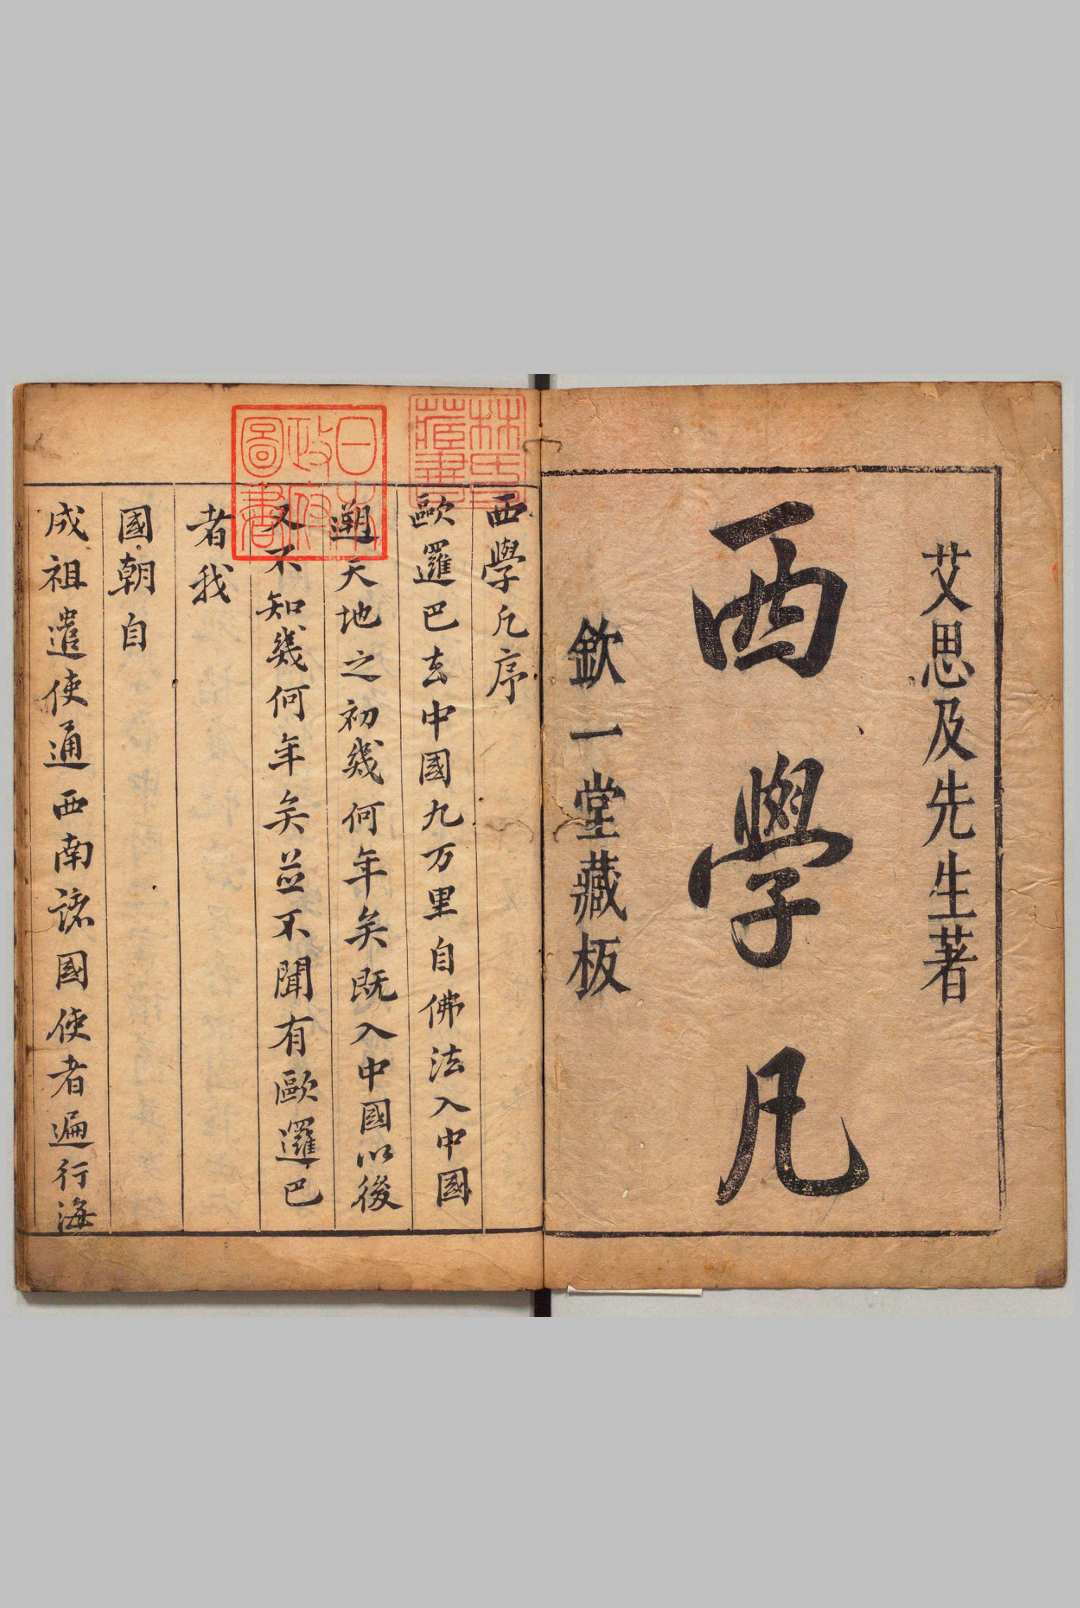 艾思及先生著
西學凡
欽一堂藏板
林氏藏書
日本政府圖書
西學凡序
歐邏巴去中國九万里自佛法入中國
遡天地之初幾何年矣既入中國以後
又不知幾何年矣並不聞有歐邏巴
者我
國朝自
成祖遣使通西南諸國使者遍行海